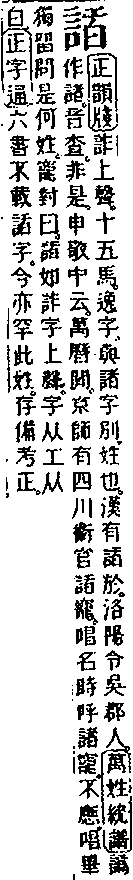 正韻牋詐上聲。十五馬。逸字。與諸字別。姓也。漢有於。洛陽令吳郡人。萬姓統譜譌
作諸。音查。非是。申敬中云。萬曆閒。京師有四川衞官寵。唱名時呼諸寵。不應。唱畢
獨留問是何姓。寵對曰。如詐字上聲。字从工从
白。正字通六書不載字。今亦罕此姓。存備考正。